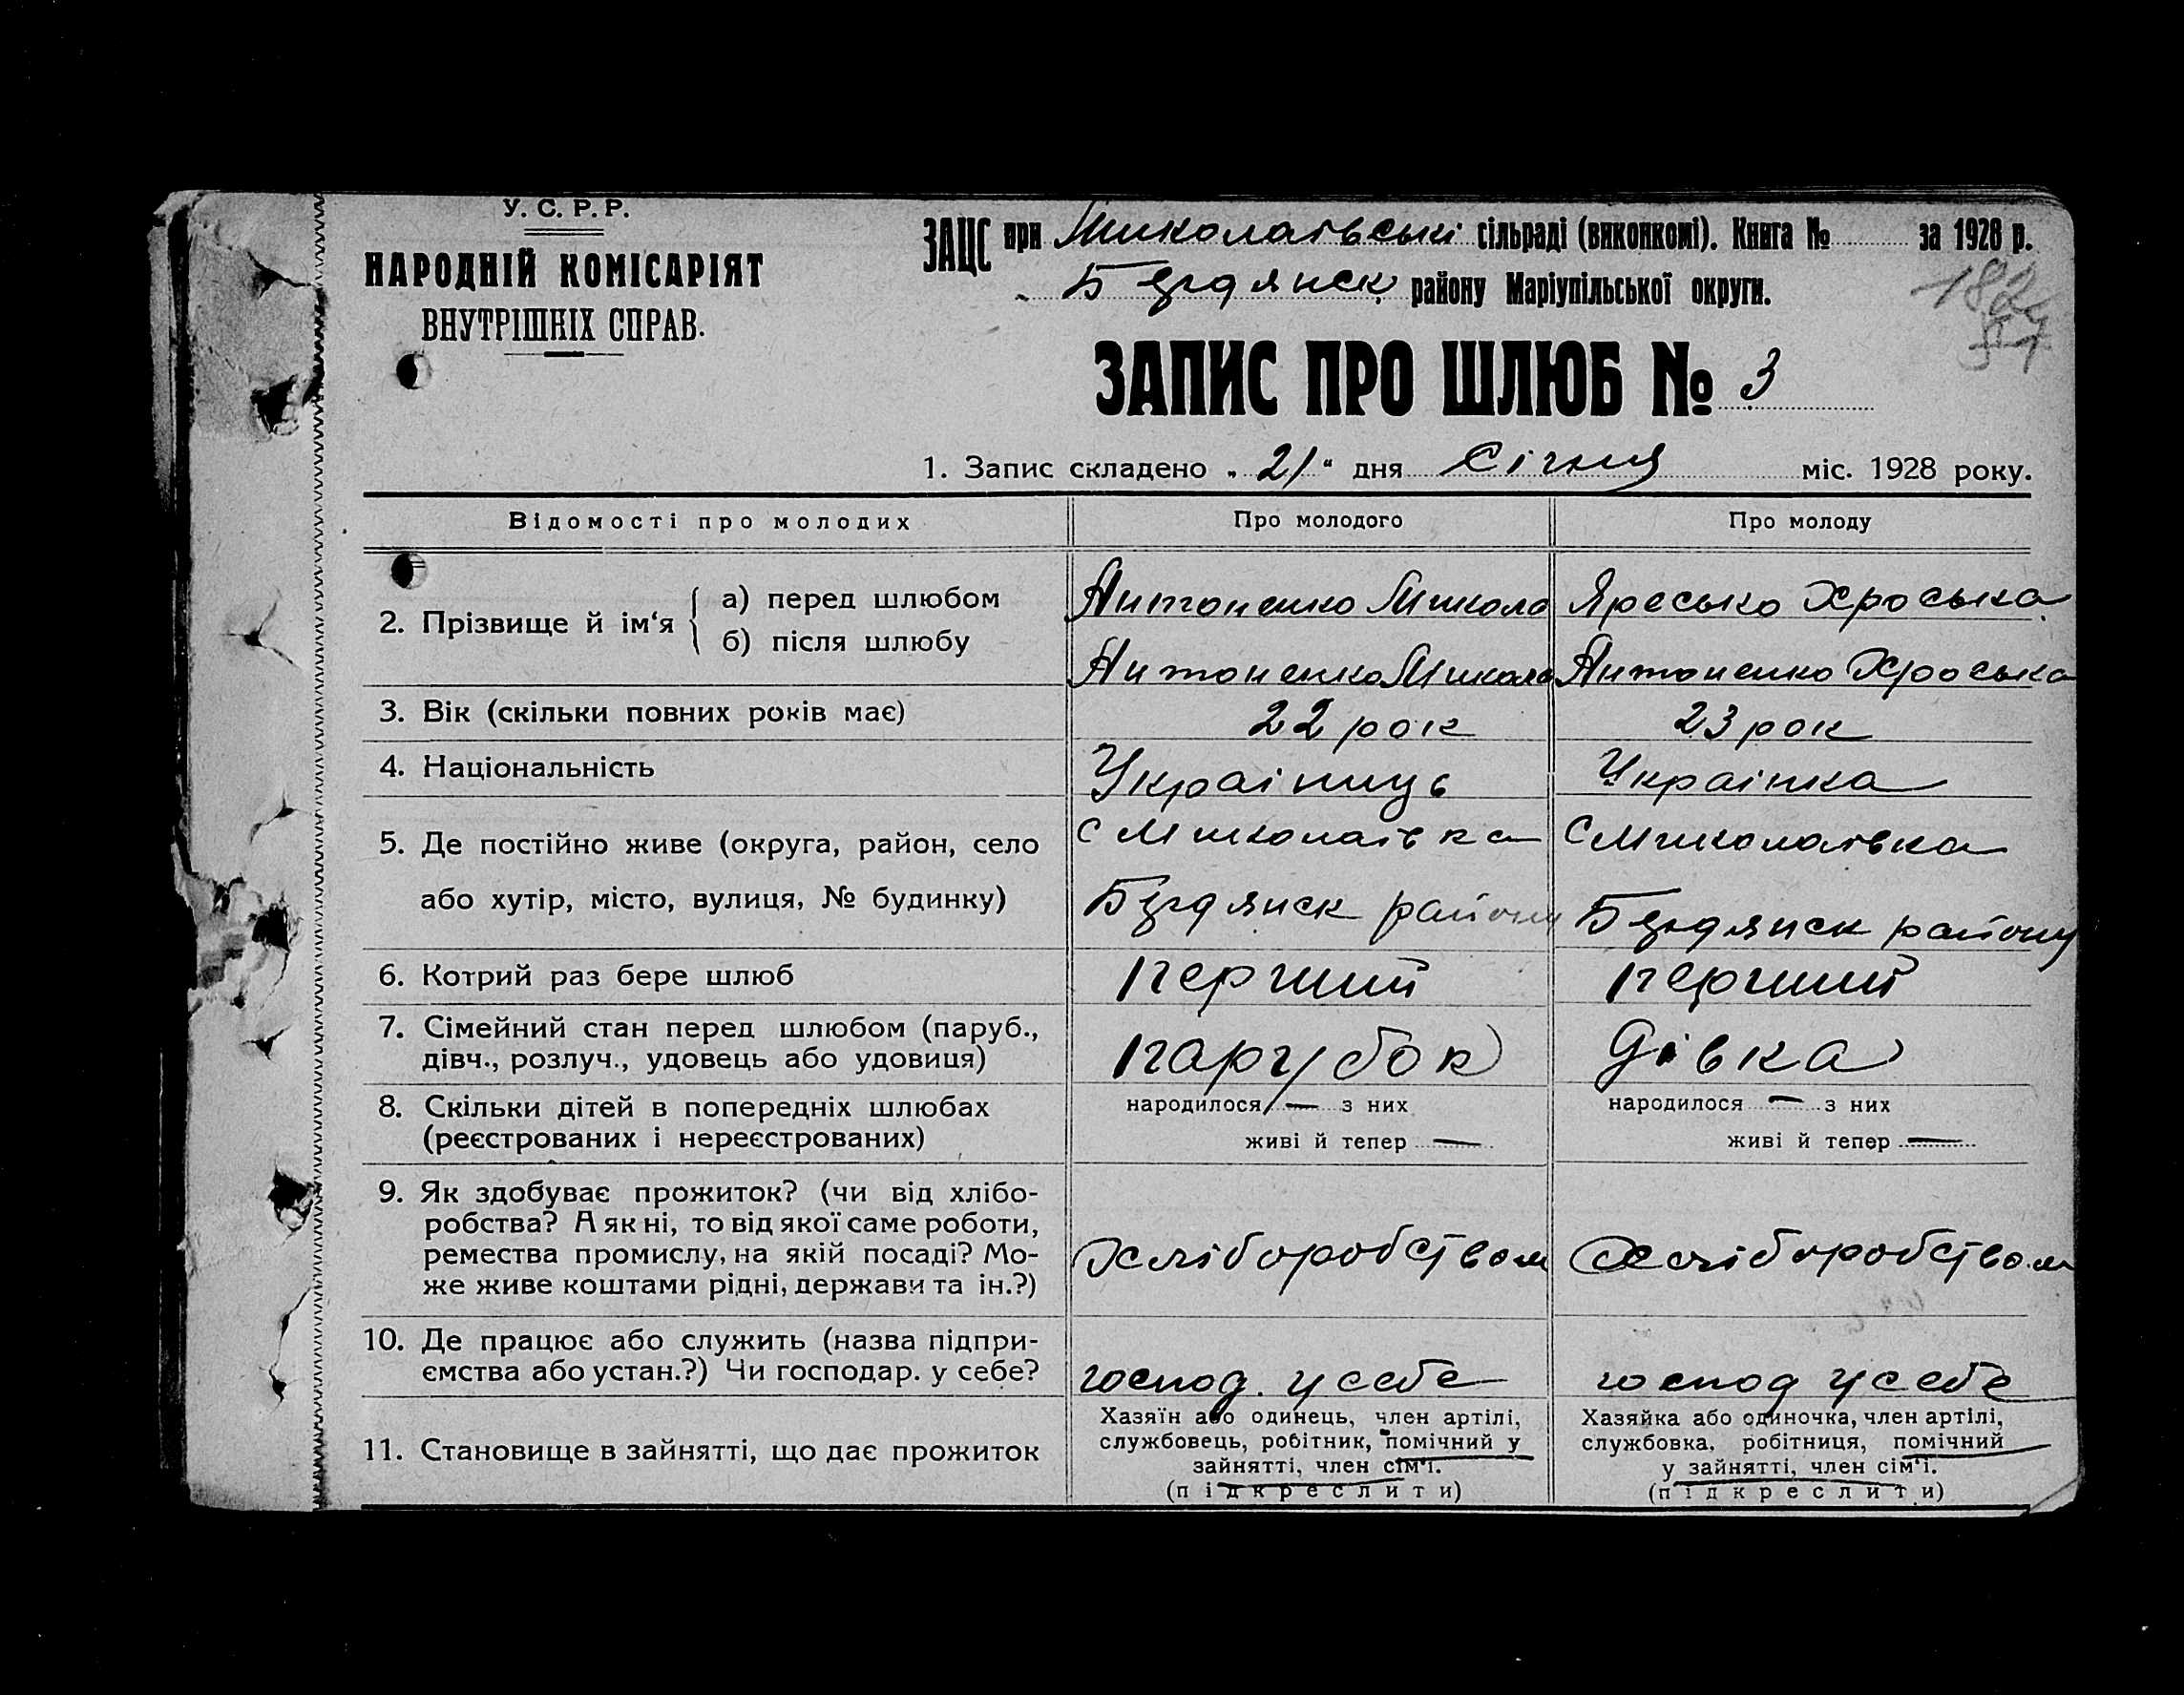 У. С. Р. Р.
НАРОДНІЙ КОМІСАРІЯТ
ВНУТРІШНІХ СПРАВ.
ЗАЦС при Миколаівські сільраді (виконкомі). Книга № за 1928 р.
Бердянск району Маріупільської округи.
ЗАПИС ПРО ШЛЮБ № 3
1. Запис складено „21“ дня Січня міс. 1928 року.
Відомості про молодих
Про молодого
Про молоду
2. Прізвище й ім‘я
а) перед шлюбом
Антоненко Микола
Яресько Хроська
б) після шлюбу
Антоненко Микола
Антоненко Хроська
3. Вік (скільки повних років має)
22 рок
23 рок
4. Національність
Украінець
Украінка
5. Де постійно живе (округа, район, село
або хутір, місто, вулиця, № будинку)
с Миколаівка
Бердянск району
С Миколаівка
Бердянск району
6. Котрий раз бере шлюб
перший
перший
7. Сімейний стан перед шлюбом (паруб.,
дівч., розлуч., удовець або удовиця)
парубок
дівка
8. Скільки дітей в попередніх шлюбах
(реєстрованих і нереєстрованих)
народилося — з них
живі й тепер —
народилося — з них
живі й тепер —
9. Як здобуває прожиток? (чи від хлібо-
робства? А як ні, то від якої саме роботи,
ремества промислу, на якій посаді? Мо-
же живе коштами рідні, держави та ін.?)
Хліборобством
Хліборобством
10. Де працює або служить (назва підпри-
ємства або устан.?) Чи господар. у себе?
господ. у себе
господ у себе
11. Становище в зайнятті, що дає прожиток
Хазяїн або одинець, член артілі,
службовець, робітник, помічний у
зайнятті, член сім‘ї.
(підкреслити)
Хазяйка або одиночка, член артілі,
службовка, робітниця, помічний
у зайнятті, член сім‘ї.
(підкреслити)